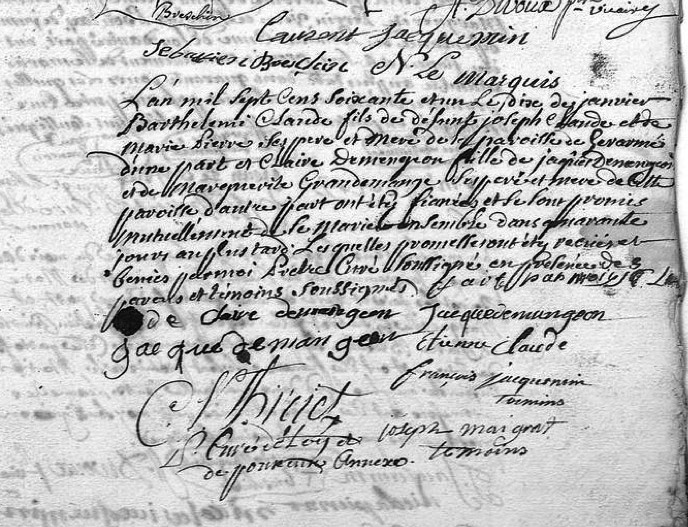 Breschin A. Divoux
Laurent Jacquemin
Sebastien Breschin N Le Marquis
L'an mil sept Cens soixante et un Le dix de janvier
Barthelemi Claude fils de defunt joseph Claude et de
Marie Pierre ses pere et Mere de la paroisse de Gerarmé
d'une part et Claire Demengeon fille de jaque Demengeon
et de Marguerite Grandemange ses pere et mere de cette
paroisse d'autre part ont été fiancés et se sont promis
mutuellement de se Marier ensemble dans quarante
jours au plus tard Lesquelles promesses ont été receües et
benies par moi Prêtre Curé soussigné en presence des
parens et témoins soussignés
de Claire demengeon Jacquedemungeon
Jacque demangeon etienne Claude
françois jacquemin
temoins
C. Thiriet joseph maigrat
Curé temoins
de annexe.